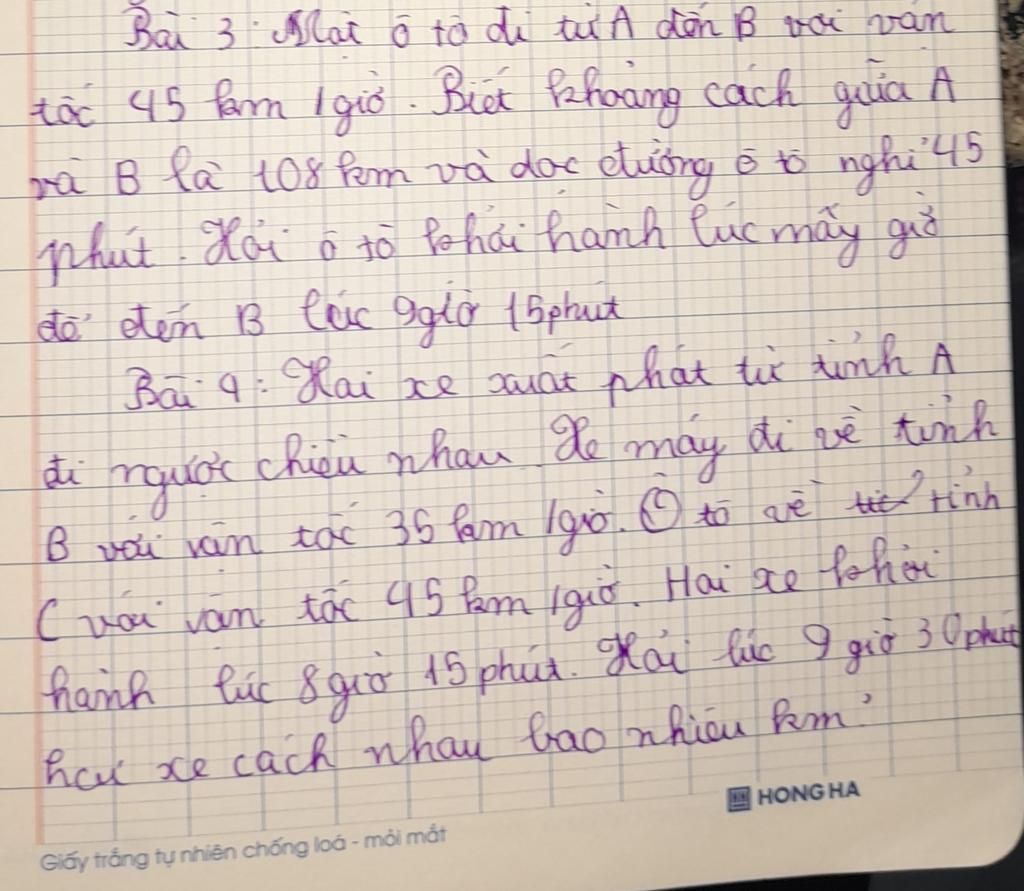 Bài 3: Một ô tô đi từ A đến B với vận
tốc 45 km/giờ. Biết khoảng cách giữa A
và B là 108 km và dọc đường ô tô nghỉ 45
phút. Hỏi ô tô khởi hành lúc mấy giờ
để đến B lúc 9giờ 15phút
Bài 4: Hai xe xuất phát từ tỉnh A
đi ngược chiều nhau. Xe máy đi về tỉnh
B với vận tốc 35 km/giờ. Ô tô về tỉnh
C với vận tốc 45 km/giờ. Hai xe khởi
hành lúc 8giờ 15phút. Hỏi lúc 9 giờ 30phút
hai xe cách nhau bao nhiêu km?
HONG HA
Giấy trắng tự nhiên chống loá - mỏi mắt